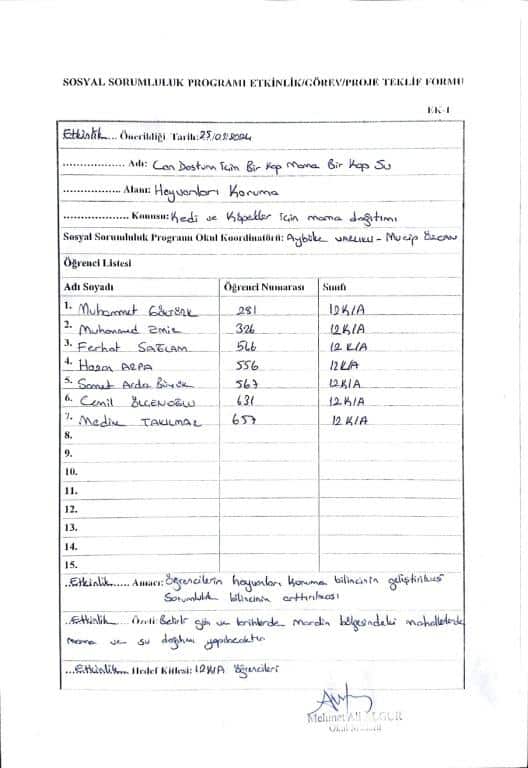 SOSYAL SORUMLULUK PROGRAMI ETKİNLİK/GÖREV/PROJE TEKLİF FORMU
EK-1
Etkinlik... Önerildiği Tarih: 25/01/2024
.................. Adı: Can Dostum İçin Bir Kap Mama Bir Kap Su
.................. Alanı: Hayvanları Koruma
.................. Konusu: Kedi ve Köpekler için mama dağıtımı
Sosyal Sorumluluk Programı Okul Koordinatörü: Aybüke - Mucip ÖZCAN
Öğrenci Listesi
Adı Soyadı Öğrenci Numarası Sınıfı
1. Muhammet GÖKTÜRK 281 12K/A
2. Muhammed EMİR 326 12K/A
3. Ferhat SAĞLAM 546 12K/A
4. Hasan ARPA 556 12K/A
5. Samet Arda 567 12K/A
6. Cemil 631 12K/A
7. TAKILMAZ 657 12K/A
8.
9.
10.
11.
12.
13.
14.
15.
..Etkinlik...... Amacı: Öğrencilerin hayvanları koruma bilincinin geliştirilmesi
Sorumluluk bilincinin arttırılması
..Etkinlik.... Özeti: Belirli gün ve tarihlerde Mardin bölgesindeki mahallelerde
mama ve su dağıtımı yapılacaktır
...Etkinlik... Hedef Kitlesi: 12K/A öğrencileri
Mehmet Ali
Okul